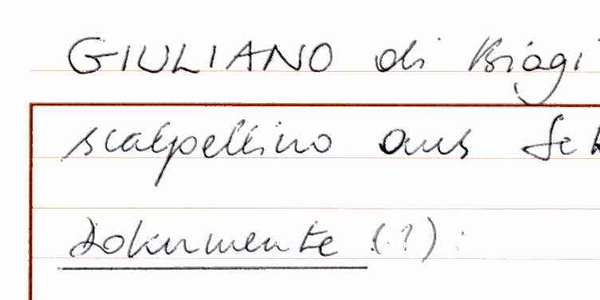 GIULIANO di Biagi
scalpellino aus Set
Dokumente (?):